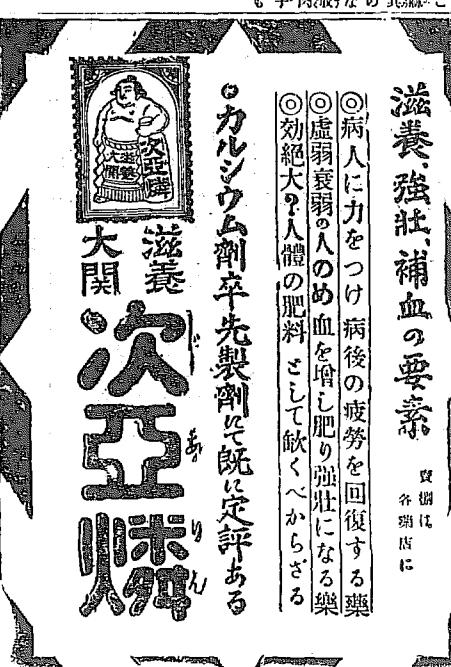 滋養、強壯、補血の要素
賣捌は
各藥店に
◎病人に力をつけ 病後の疲勞を回復する藥
◎虛弱衰弱の人のめ血を増し肥り强壯になる藥
◎効絶大?人體の肥料 として缺くべからざる
カルシウム劑卒先製劑にて既に定評ある
次亞燐
滋養
大関
滋養
大関
次亞燐
じありん